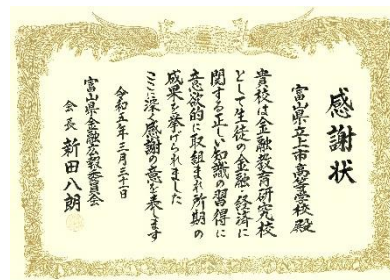 感謝状
富山県立上市高等学校 殿
貴校は金融教育研究校
として生徒の金融・経済に
関する正しい知識の習得に
意欲的に取組まれ所期の
成果を挙げられました
ここに深く感謝の意を表します
令和五年三月三十一日
富山県金融広報委員会
会長 新田八朗